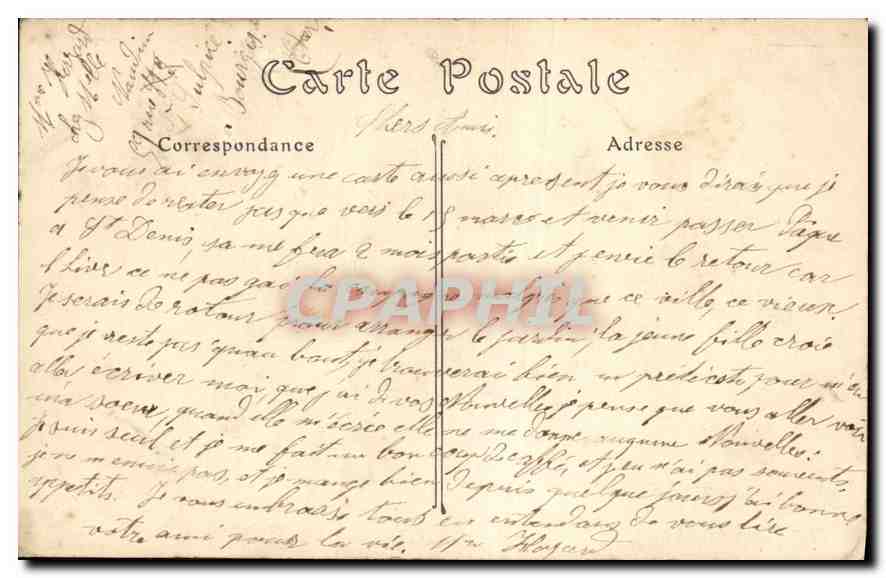 Mme Vve Hazard
chez Melle
Naudin
rue St
Sulpice
Bourges
Cher
Carte Postale
Chers Amis
Correspondance
Adresse
Je vous ai envoyg une carte aussi apresent je vous dirai que je
pense de rester jusque vers le 15 mars et venir passer Paque
a St Denis, sa me fera 2 mois partie et j'envie le retour car
l hiver ce né pas gai la campagne malgré que ce ville, ce vieux
Je serais de retour pour arranger le jardin, la jeune fille croie
que je reste pas qu'au bout, je trouverai bien un prétexte pour m'en
aller écriver moi que j'ai de vos Nouvelles je pense que vous aller voir
ma soeur, quand elle m'écrie elle ne me donne augune Nouvelles.
je suis seul et je me fait un bon coup de caffé, et j'en n'ai pas souvents,
je ne m'ennuie pas, et je mange bien depuis quelque jours j'ai bonne
appetits. Je vous embrasse tous en entendans de vous lire
votre ami pour la vie. Mr Hazard
CPAPHIL